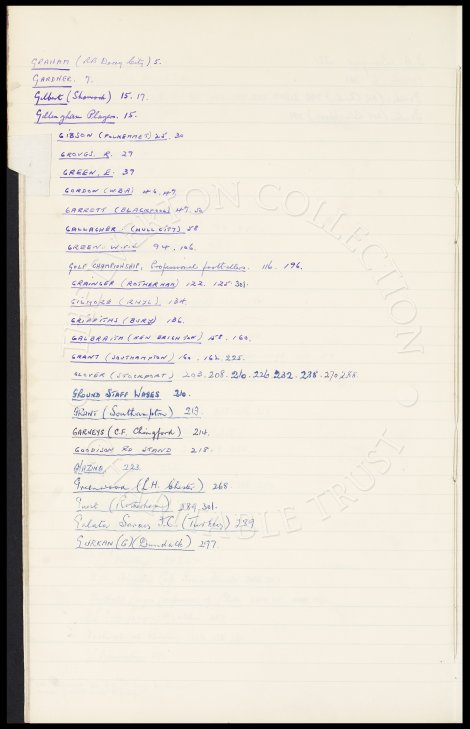 GRAHAM (R.B. Derry City) 5.
GARDNER. 7.
Gilbert (Shamrock) 15. 17.
Gillingham Players. 15.
GIBSON (POLKEMMET) 25. 30
GROVES. R. 29
GREEN, E. 39
GORDON (WBA) 46. 49.
GARRETT (BLACKPOOL) 49. 50
GALLAGHER. (HULL CITY) 58
GREEN. W. 94. 106.
GOLF CHAMPIONSHIP, Professional footballers. 116. 196.
GRAINGER (ROTHERHAM) 122. 125. 301.
GILMORE (RHYL). 134.
GRIFFITHS (BURY) 136.
GALBRAITH (NEW BRIGHTON) 158. 160.
GRANT (SOUTHAMPTON) 160. 162. 225.
GLOVER (STOCKPORT) 203. 208. 210. 226. 232. 238. 270. 288.
GROUND STAFF WAGES 210.
GRANT (Southampton) 213.
GARNEYS (C.F. Chingford) 214.
GOODISON RD STAND 218.
223
Greenwood (R.H. Chester) 268
Guest (Rotherham) 289, 301.
Galata Saray F.C. (Turkey) 289
GURKAN (G) (Dundalk) 297.
COLLECTION
CHARITABLE TRUST